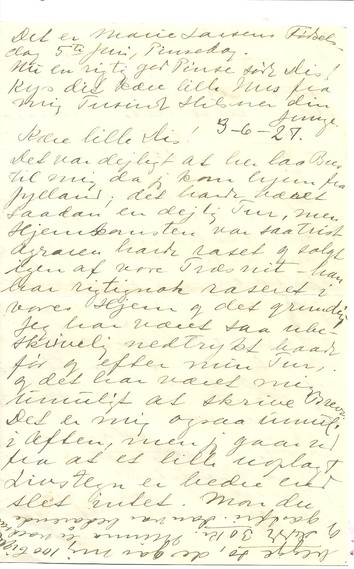 Det er Marie Larsens Fødsels-
dag 5te Juni, Pinsedag.
Nu en rigtig god Pinse søde Dis!
Kys dit kære lille Mus fra
mig Tusind Hilsner din
Junge.
Kære lille Dis! 3-6-27.
Det var dejligt at her laa Brev
til mig da j. kom hjem fra
Jylland; det havde været
saadan en dejlig Tur, men
Hjemkomsten var saa trist
Agraren havde raset og solgt
igen af vore Træsnit – han
har rigtignok raseret i
vores Hjem og det grundig
Jeg har været saa ube-
skrivelig nedtrykt baade
før og efter min Tur,
og det har været mig
umuligt at skrive Breve.
Det er mig ogsaa umuli
i Aften, men j. gaar ud
fra at et lille uoplagt
Livstegn er bedre end
slet intet. Mon du